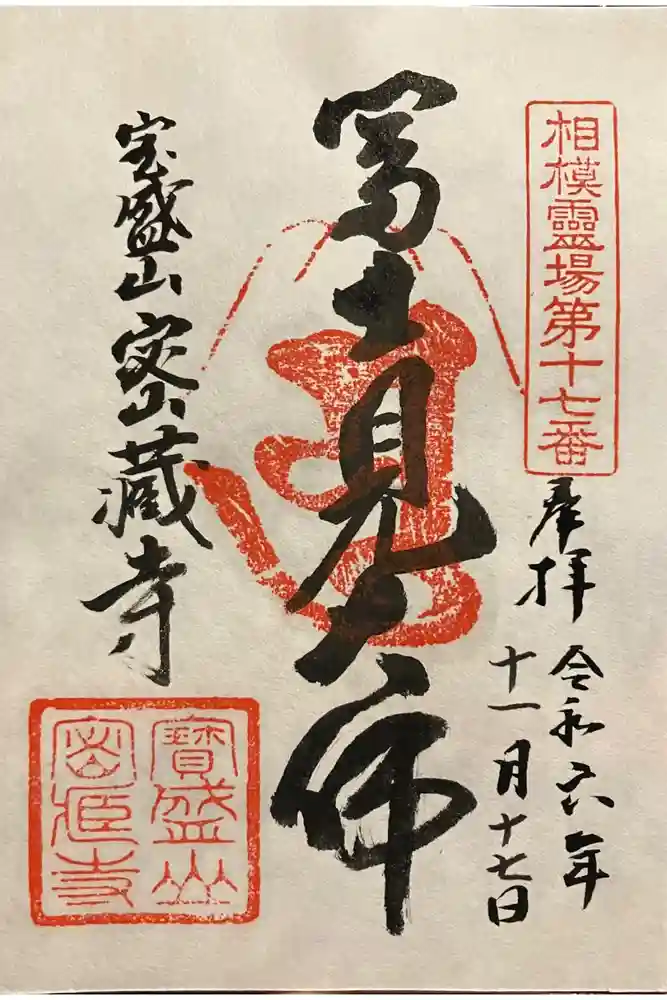 相模霊場第十七番
奉拝
令和六年
十一月十七日
冨士見大師
宝盛山密蔵寺
寶盛山
密蔵寺